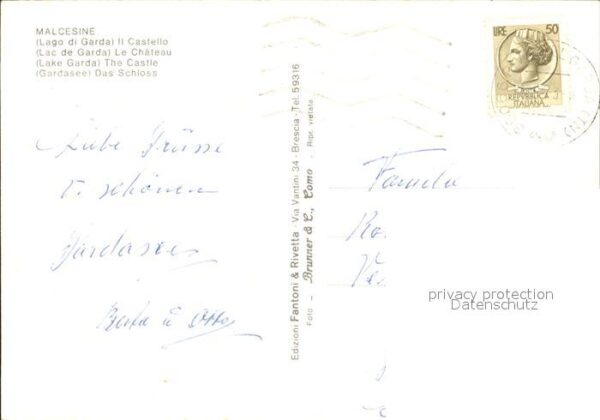 MALCESINE
(Lago di Garda) Il Castello
(Lac de Garda) Le Château
(Lake Garda) The Castle
(Gardasee) Das Schloss
Liebe Grüsse
v. schönen
Gardasee
Berta u Otto
Edizioni Fantoni & Rivetta - Via Vantini 34 - Brescia - Tel. 59316
Foto - Brunner & C., Como - Ripr. vietata
LIRE 50
REPUBBLICA
ITALIANA
Familie
privacy protection
Datenschutz